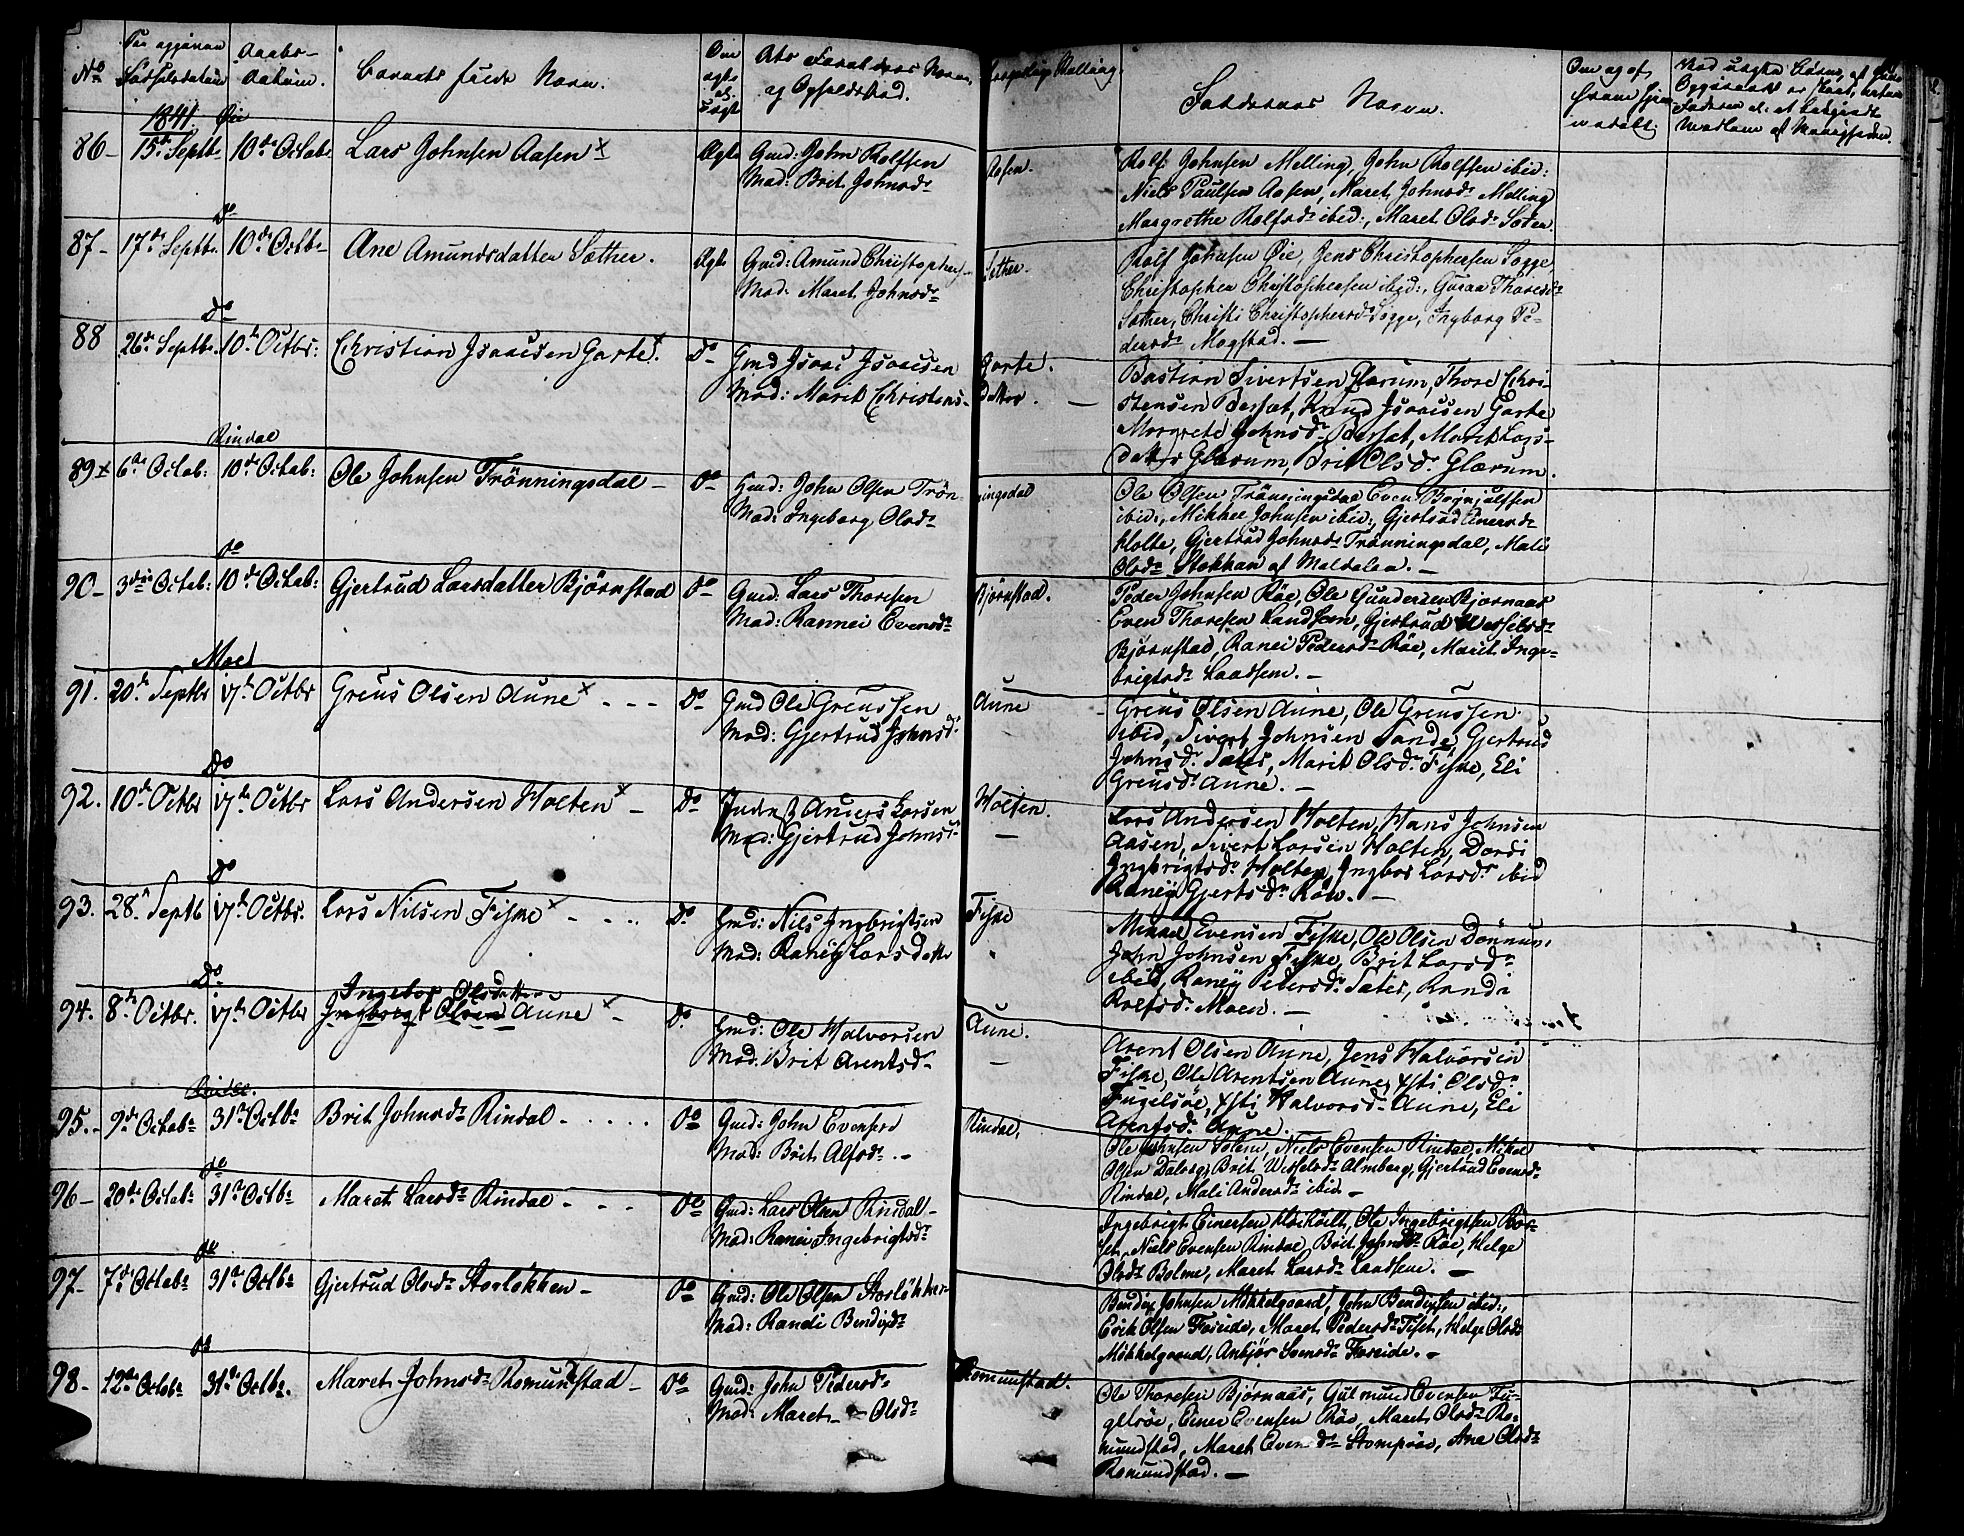 No
Den opgivne Fødselsdatum
Daabs-Datum.
Barnets fulde Navn.
Om ægte el. uægte
Ets Forældres Navn, og Opholdssted.
borgerlige Stilling.
Faddernes Navn.
1841. Øie
86- 15de Septb. 10de Octob. Lars Johnsen Aasen x Ægte Gmd: John Rolfsen Aasen.
Mod: Brit Johnsdr
Rolf Johnsen Melling, John Rolfsen ibid:
Niels Paulsen Aasen, Maret Johnsdr Melling
Margrethe Rolfsdr ibid:, Maret Olsdr Sæter.
Do
87- 17de Septb. 10de Octb. Ane Amundsdatter Sæther. Ægte Gmd: Amund Christophers- Sæther.
Mod: Maret Johnsdr
Rolf Johnsen Øie, Jens Christophersen Sogge,
Christopher Christophersen ibid:, Guraa Thoresdr
Sæther, Christi Christophersdr Sogge, Ingborg Pe-
dersdr Mogstad. -
Do
88 26de Septb. 10de Octbr: Christian Isaacsen Garte. Do Gmd Isaac Isaacsen Garte.
Mod: Marit Christens- datter. -
Bastian Sivertsen Glærum, Thore Chri-
stensen Bersæt, Knud Isaacsen Garte
Margrete Johnsdr Bersæt, Marit Lars-
datter Glærum, Brit Olsdr Glærum.
Rindal
89 x 6te Octob: 10de Octob: Ole Johnsen Trönningsdal - Do Gmd: John Olsen Trön- ningsdal
Mod: Ingeborg Olsdr
Ole Olsen Trönningsdal Even Bojnjulfsen
ibid:, Mikkel Johnsen ibid:, Gjertrud Einersdr
Holte, Gjertrud Johnsdr Trönningsdal, Mali
Olsdr Stokkan af Meldalen. -
Do
90- 3die Octob: 10de Octob: Gjertrud Larsdatter Bjørnstad Do Gmd: Lars Thoresen Bjørnstad.
Mod: Rannei Evensdr
Peder Johnsen Röe, Ole Gundersen Bjørnaas
Even Thoresen Landsem, Gjertrud Wesselsdr
Bjørnstad, Ranei Pedersdr Röe, Marit Inge-
brigtsdr Landsem. -
Moe
91. 20de Septbr 17de Octbr Greus Olsen Aune x - - - Do Gmd Ole Greussen Aune
Mod: Gjertrud Johnsd.
Greus Olsen Aune, Ole Greussen
ibid, Sivert Johnsen Sande, Gjertrud
Johnsdr Sæter, Marit Olsdr Fiske, Eli
Greusdr Aune. -
Do
92. 10de Octbr 17de Octbr Lars Andersen Holten x - Do Anders Larsen Holten.
Mod: Gjertrud Johnsd. -
Lars Andersen Holten, Hans Johnsen
Aasen, Sivert Larsen Holten, Dordi
Ingbrigtsdr Holten, Ingbor Larsdr ibid
Raney Gjertsdr Röen. -
Do
93. 28. Septb 17de Octbr. Lars Nilsen Fiske x - . . . Do Gmd: Nils Ingbrigtsen Fiske
Mod: Raney Larsdatter "
Mikkel Evensen Fiske, Ole Olsen Donnum,
John Johnsen Fiske, Brit Larsdr
ibid, Raney Pedersdr Sæter, Randi
Rolfsdr Moen. -
Do
94. 8de Octbr. 17de Octbr Ingebor Olsdatter
Ingbregt Olsen Aune x - Do Gmd: Ole Halvorsen Aune.
Mod: Brit Arentsdr -
Arent Olsen Aune, Jens Halvorsen
Fiske, Ole Arentsen Aune, Xsti Olsdr
Fugelsöe, Xsti Halvorsdr Aune, Eli
Arentsdr Aune.
Rindal.
95.- 9de Octobr 31te Octbr Brit Johnsdr Rindal - . . . . . Do Gmd: John Evensen Rindal,
Mod: Brit Alfsdr -
Ole Johnsen Solem, Niels Evensen Rindal, Mikel
Olsen Dalseg, Brit Wesselsdr Almberg, Gjertrud Evensdr
Rindal, Mali Andersdr ibid -
Do
96- 20de Octobr 31te Octbr Maret Larsdr Rindal - - - Do Gmd: Lars Olsen Rindal -
Mod: Ranei Ingebrigtsdr
Ingebrigt Einersen, Ole Ingebrigtsen Bor-
set, Niels Evensen Rindal, Brit Johnsdr Röe, Helge
Olsdr Bolme, Maret Larsdr Landsem. -
Do
97- 7de Octobr 31te Octbr Gjertrud Olsdr Storløkken - Do Gmd: Ole Olsen Storløkken
Mod: Randi Bendixdr
Bendix Johnsen Mikkelgaard, John Bendixsen ibid:,
Erik Olsen Foseide, Maret Pedersdr Tiset, Helge Olsdr
Mikkelgaard, Anbjør Svensdr Foseide. -
Do
98- 12te Octobr 31te Octbr. Maret Johnsdr Romundstad - Do Gmd: John Pedersdr Romundstad.
Mod: Maret - Olsdr
Ole Thoresen Bjørnaas, Gulmund Evensen Fu-
gelsöe, Einer Evensen Röe, Maret Olsdr Ro-
mundstad, Maret Evensdr Stompöe, Ane Olsdr
Romundstad. -